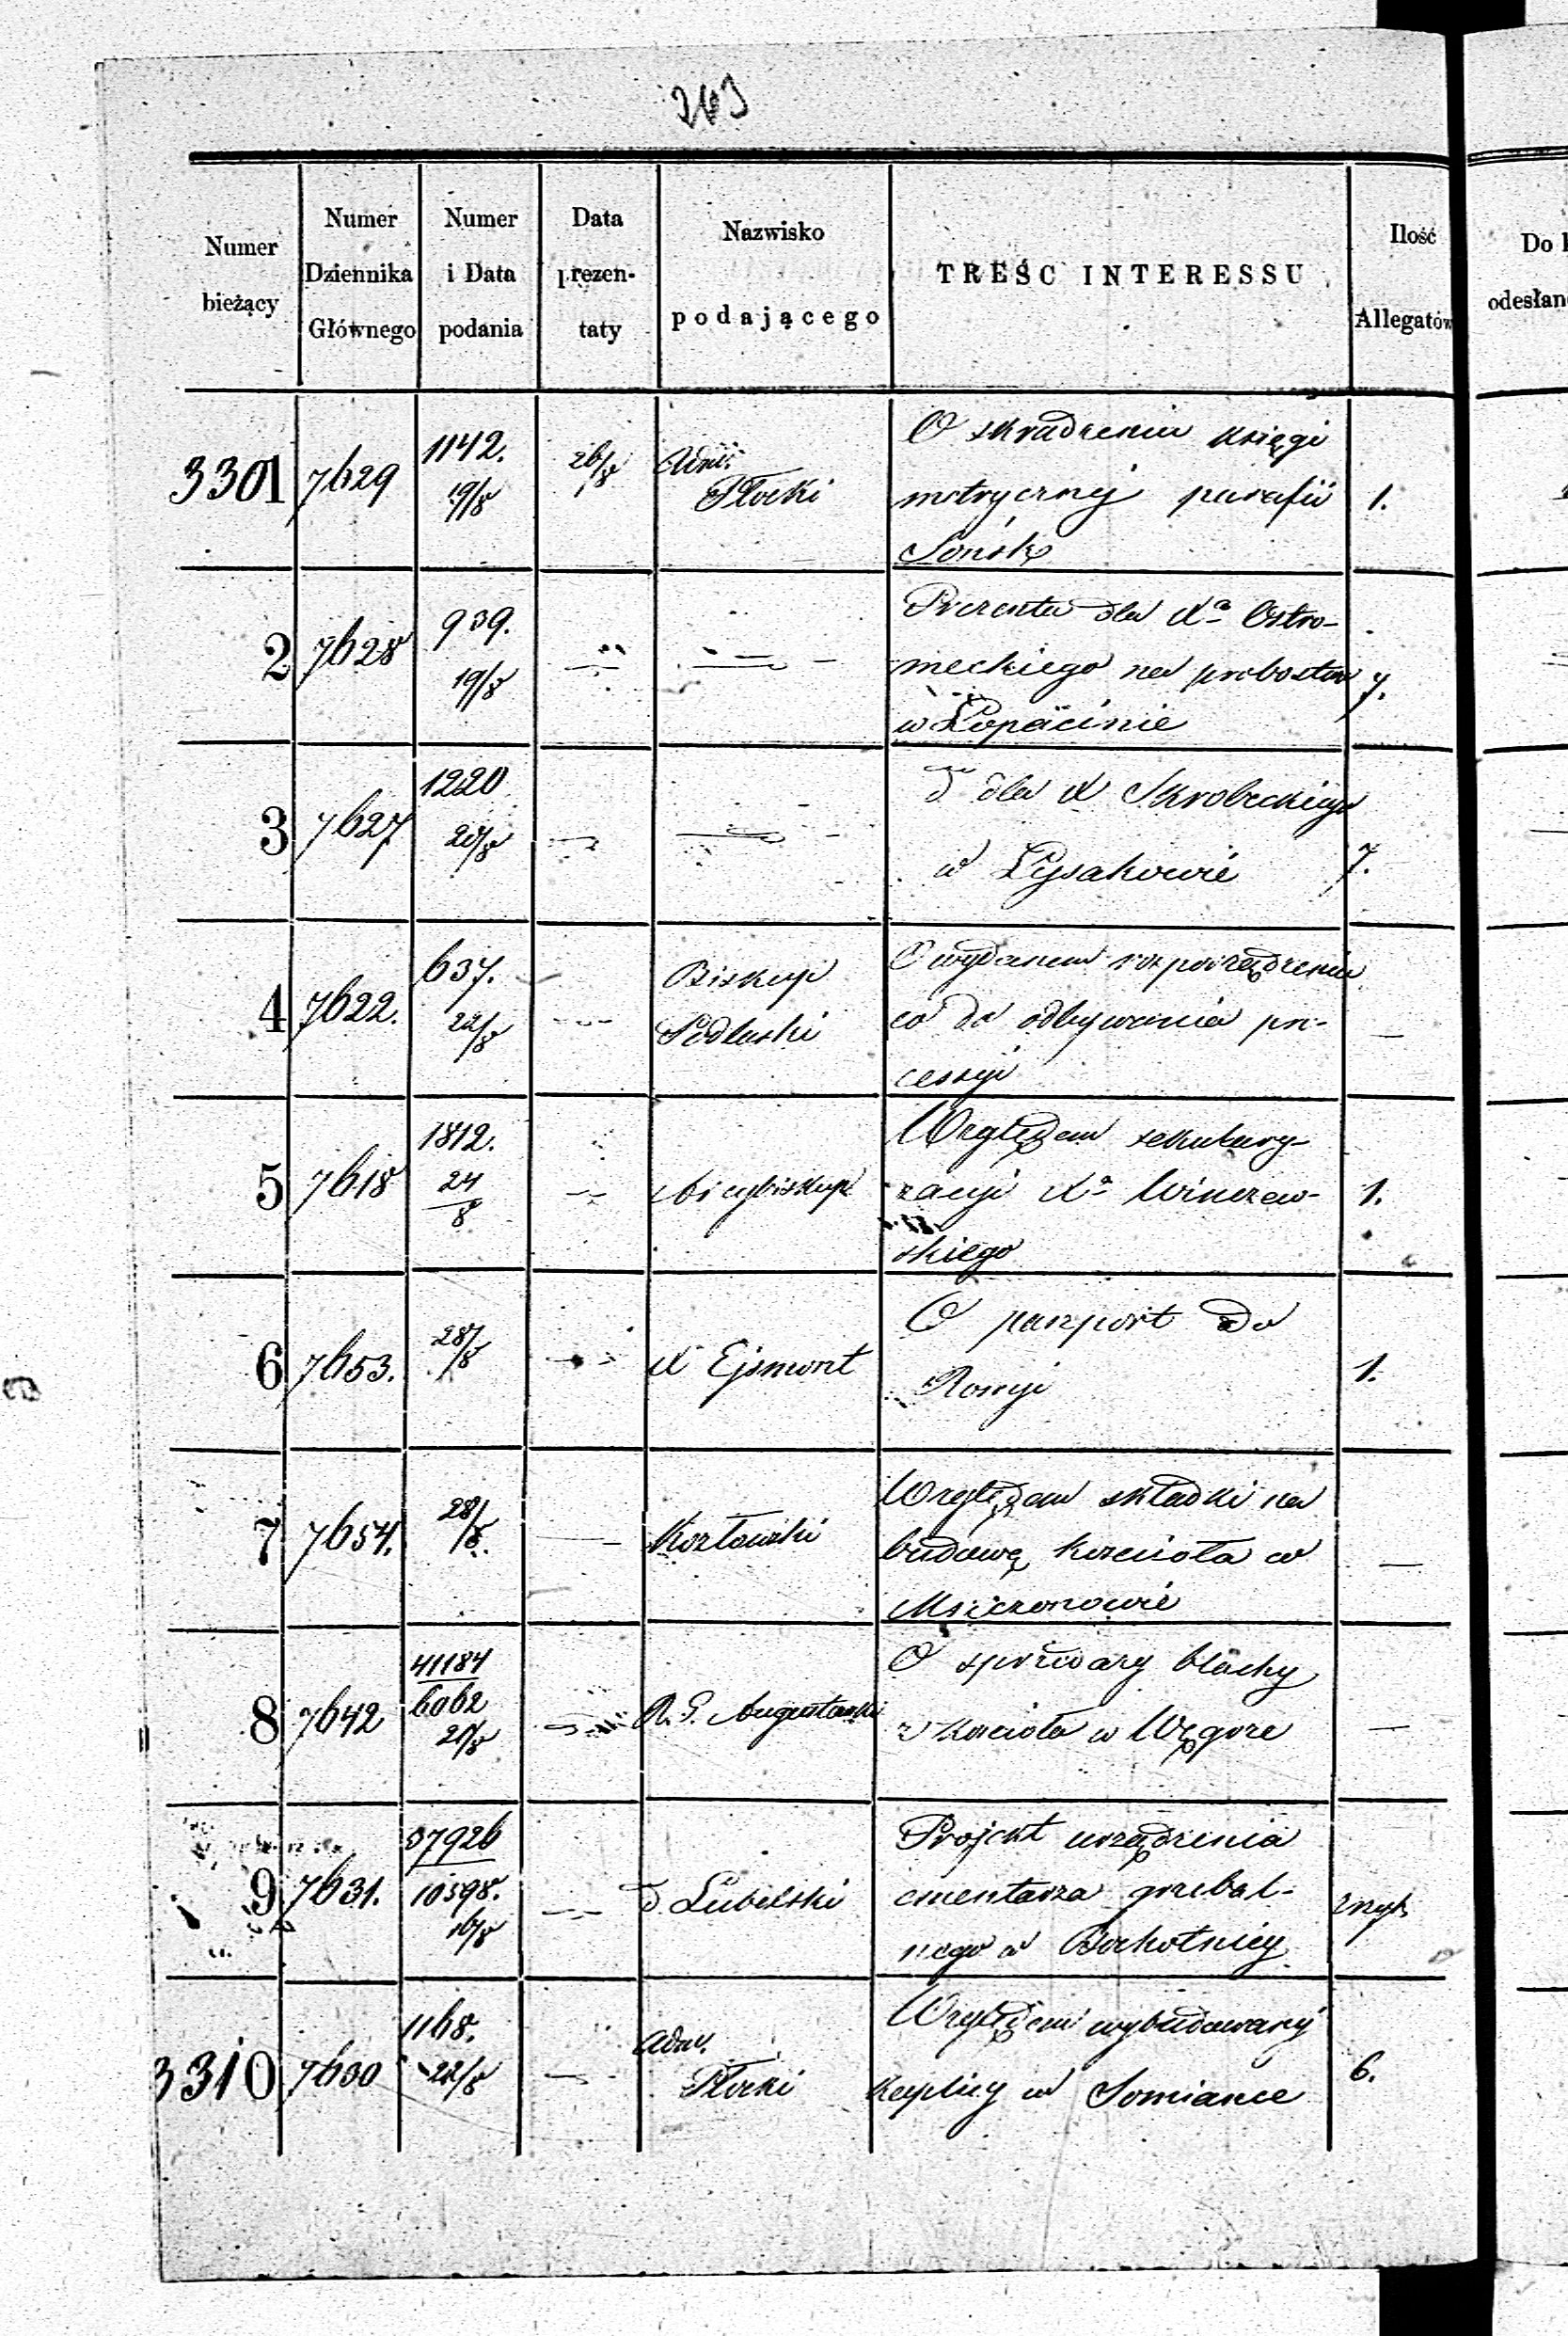 263
Numer bieżący | Numer Dziennika Głównego | Numer i Data podania | Data prezentaty | Nazwisko podającego | TREŚĆ INTERESSU | Ilość Allegatów | Do
odesłan
3301 | 7629 | 1142. 19/8 | 26/8 | Adm. Płocki | O skradzeniu księgi
metrycznej parafii | 1.
Sońsk
2 | 7628 | 939. 19/8 | — | — | Prezenta dla Xa Ostro-
meckiego na probostwo | 7.
w Łopacinie
3 | 7627 | 1220 20/8 | — | — | d dla X Skrobeckiego
w Łysakowie | 7.
4 | 7622. | 637. 22/8 | — | Biskup Podlaski | O wydanem rozporządzeniu
co do odbywania pro- | —
cessyi
5 | 7618 | 1812. 24/8 | — | Arcybiskup | Względem sekulary-
zacyi Xa Winczew- | 1.
skiego
6 | 7653. | 28/8 | — | X Ejsmont | O paszport do
Rossyi | 1.
7 | 7654. | 28/8 | — | Kozłowski | Względem składki na
budowę kościoła w | —
Mszczonowie
8 | 7642 | 41184 6062 20/8 | — | R. G. Augustowski | O sprzedaży blachy
z kościoła w | —
9 | 7631. | 37926 10598. 16/8 | — | d. Lubelski | Projekt urządzenia
cmentarza grzebal-
nego w Bochotnicy
3310 | 7630 | 1168. 22/8 | — | Adm. Płocki | Względem wybudowanej
kaplicy w Somiance | 6.